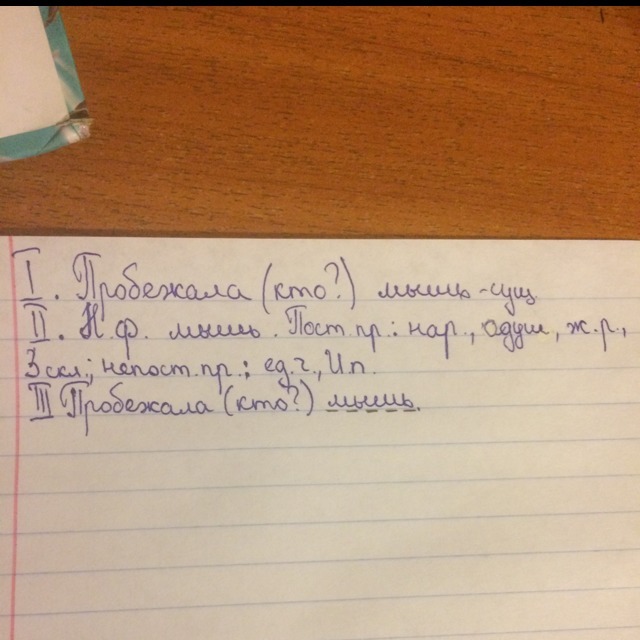 I. Пробежала (кто?) мышь - сущ
II. Н.ф. мышь. Пост.пр.: нар., одуш, ж.р.,
3 скл.; непост.пр.: ед.ч., И.п.
III Пробежала (кто?) мышь.